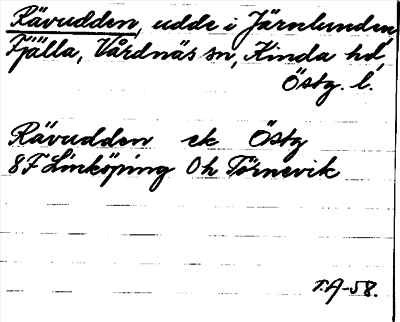 Rävudden, udde i Järnlunden,
Fjälla, Vårdnäs sn, Kinda hd,
Östg. l.
Rävudden ek Östg
8F Linköping 0h Törnevik
T.A-58.